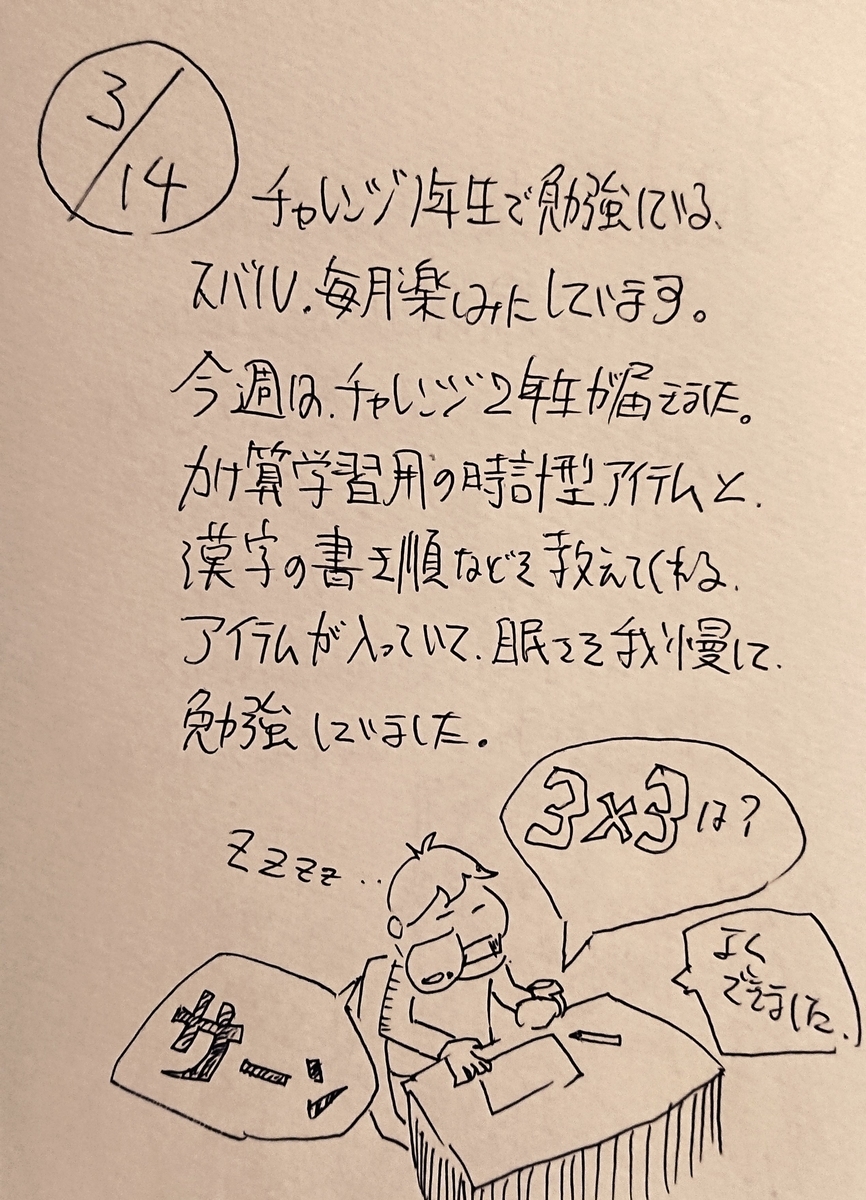 3/14
チャレンジ1年生で勉強している、
スバル。毎月楽しみにしています。
今週は、チャレンジ2年生が届きました。
かけ算学習用の時計型アイテムと、
漢字の書き順などを教えてくれる、
アイテムが入っていて、眠さを我慢して、
勉強していました。
3×3は?
zzzz..
よく
できました。
サーン